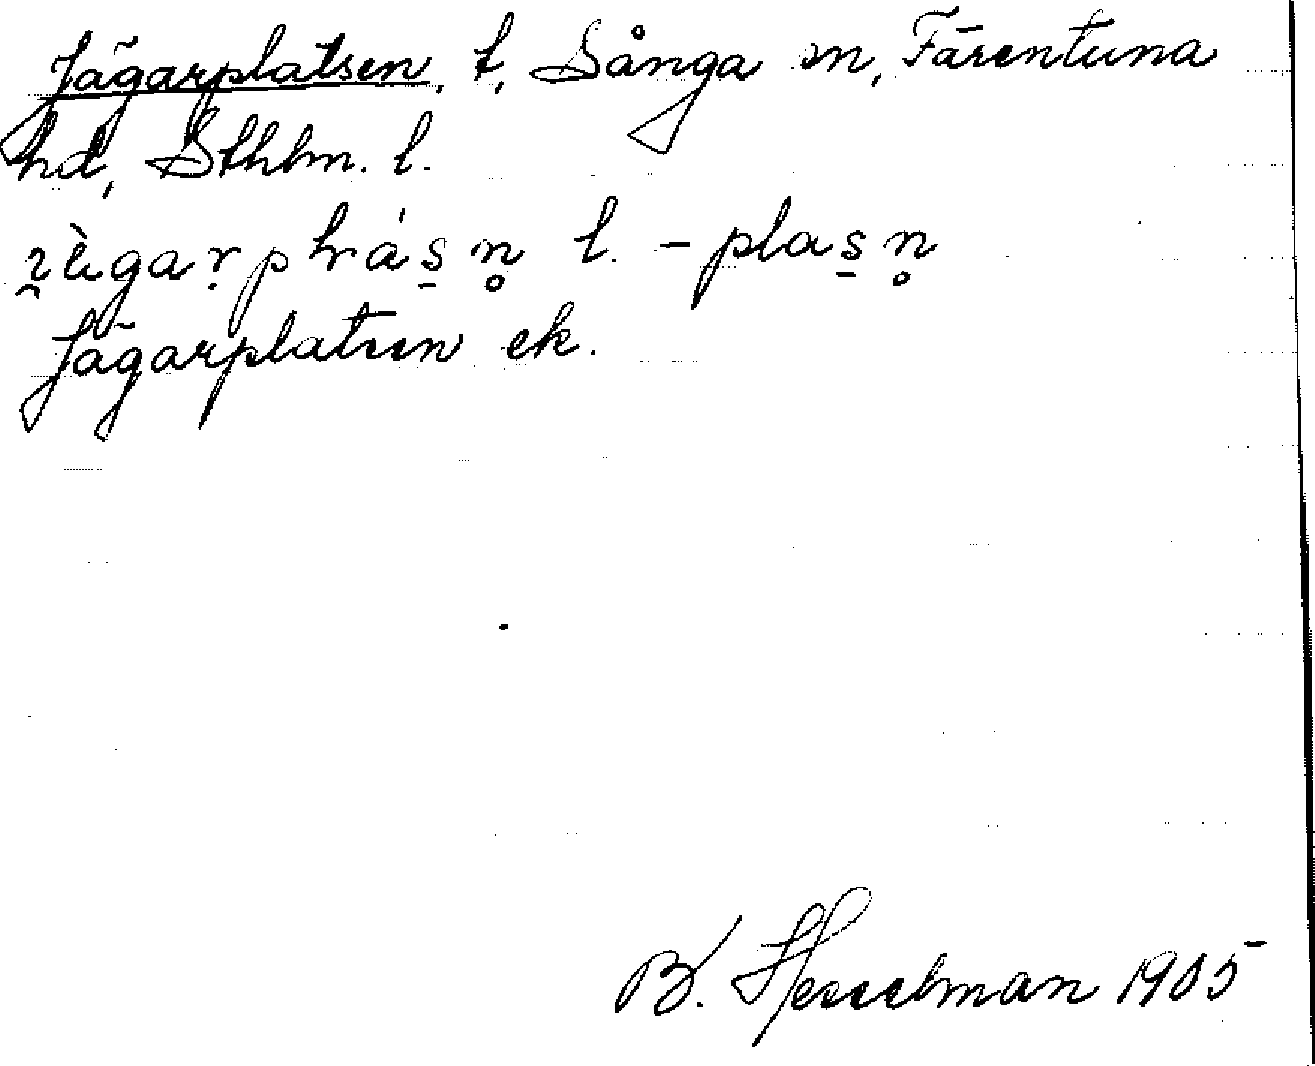 Jägarplatsen, t, Sånga sn, Färentuna
hd, Sthlm. l.
l. - plas̱n̥
Jägarplatsen ek.
B. Hesselman 1905